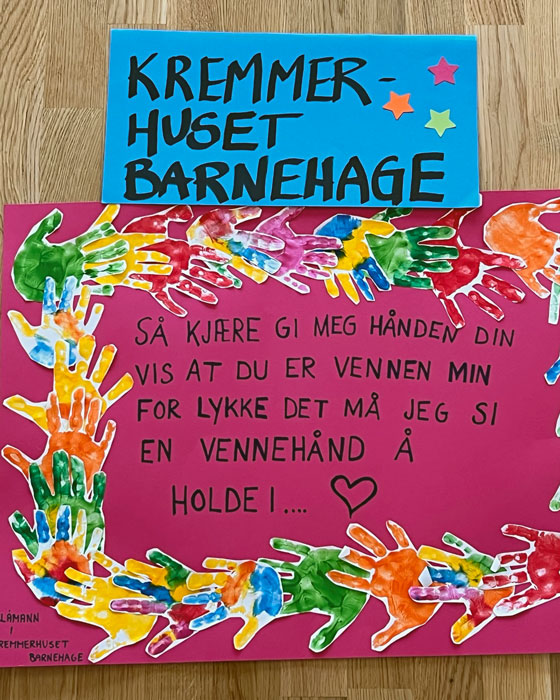 KREMMER-
HUSET
BARNEHAGE
SÅ KJÆRE GI MEG HÅNDEN DIN
VIS AT DU ER VENNEN MIN
FOR LYKKE DET MÅ JEG SI
EN VENNEHÅND Å
HOLDE I....
LÅMANN
I
REMMERHUSET
BARNEHAGE